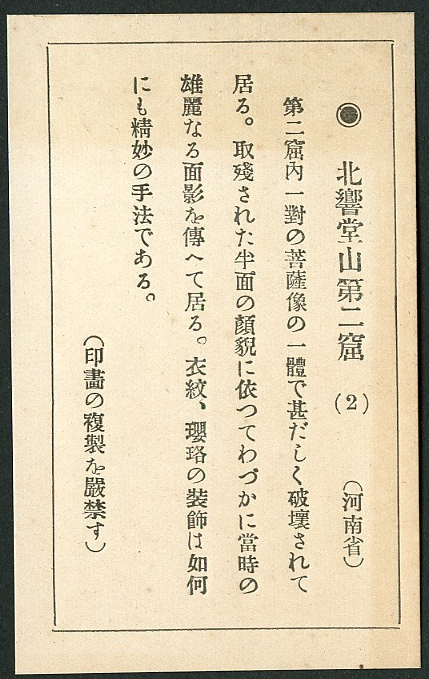 ◉ 北響堂山第二窟 (2) (河南省)
第二窟內一對の菩薩像の一體で甚だしく破壞されて
居る。取殘された半面の顏貌に依つてわづかに當時の
雄麗なる面影を傳へて居る。衣紋、瓔珞の裝飾は如何
にも精妙の手法である。
(印畫の複製を嚴禁す)